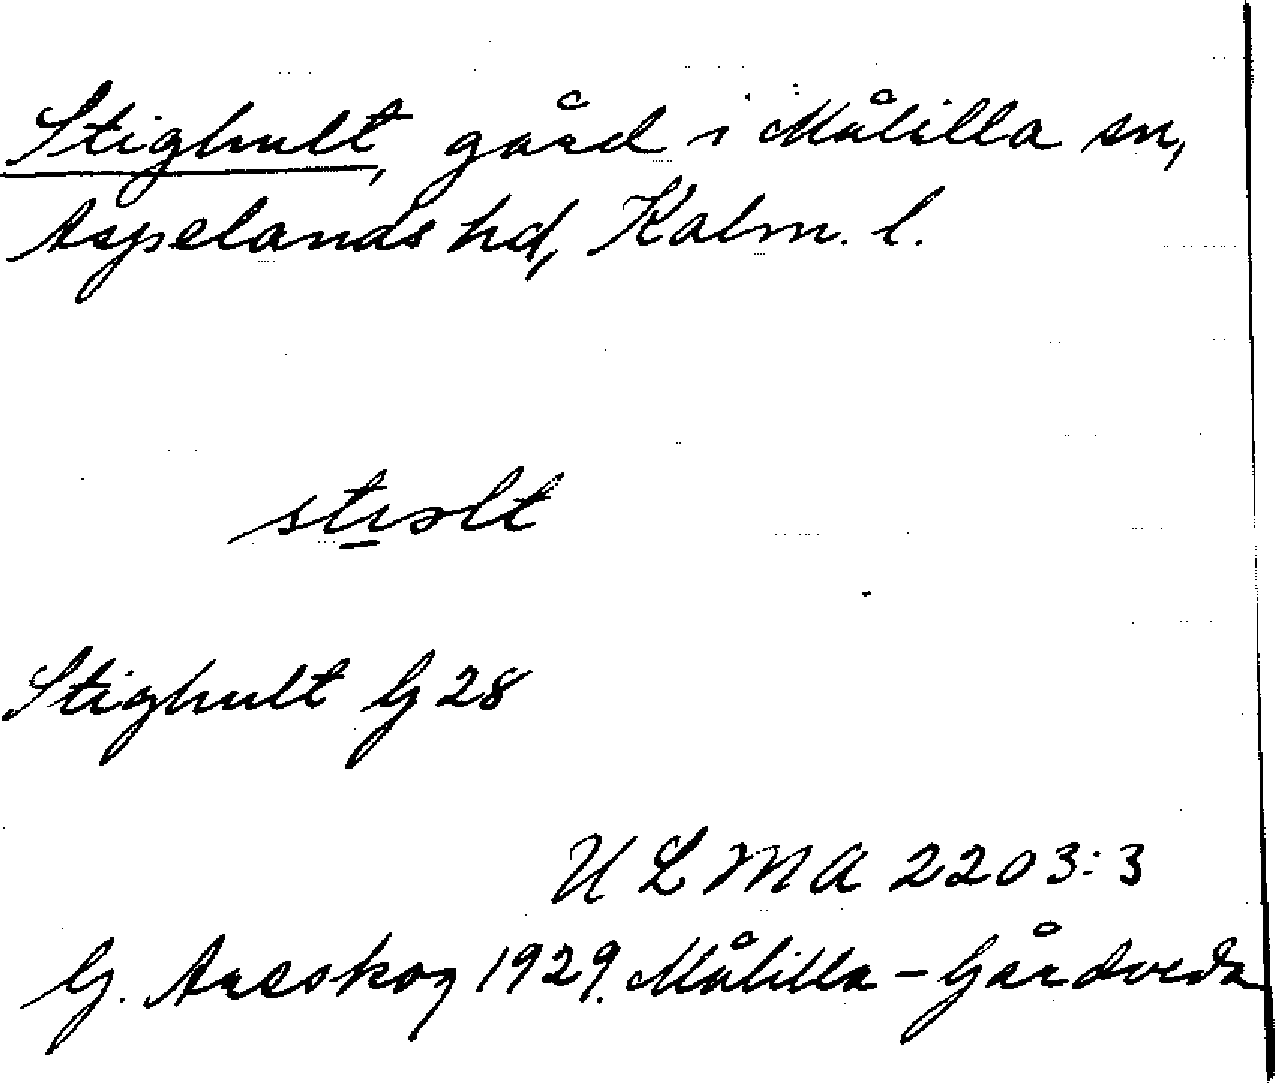 Stighult, gård i Målilla sn,
Aspelands hd, Kalm. l.
stiolt
Stighult G 28
ULMA 2203:3
G. Areskog 1929. Målilla-Gårdveda